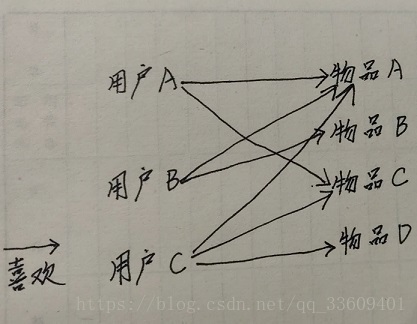 用户A
物品A
用户B
物品B
物品C
用户C
物品D
喜欢
https://blog.csdn.net/qq_33609401